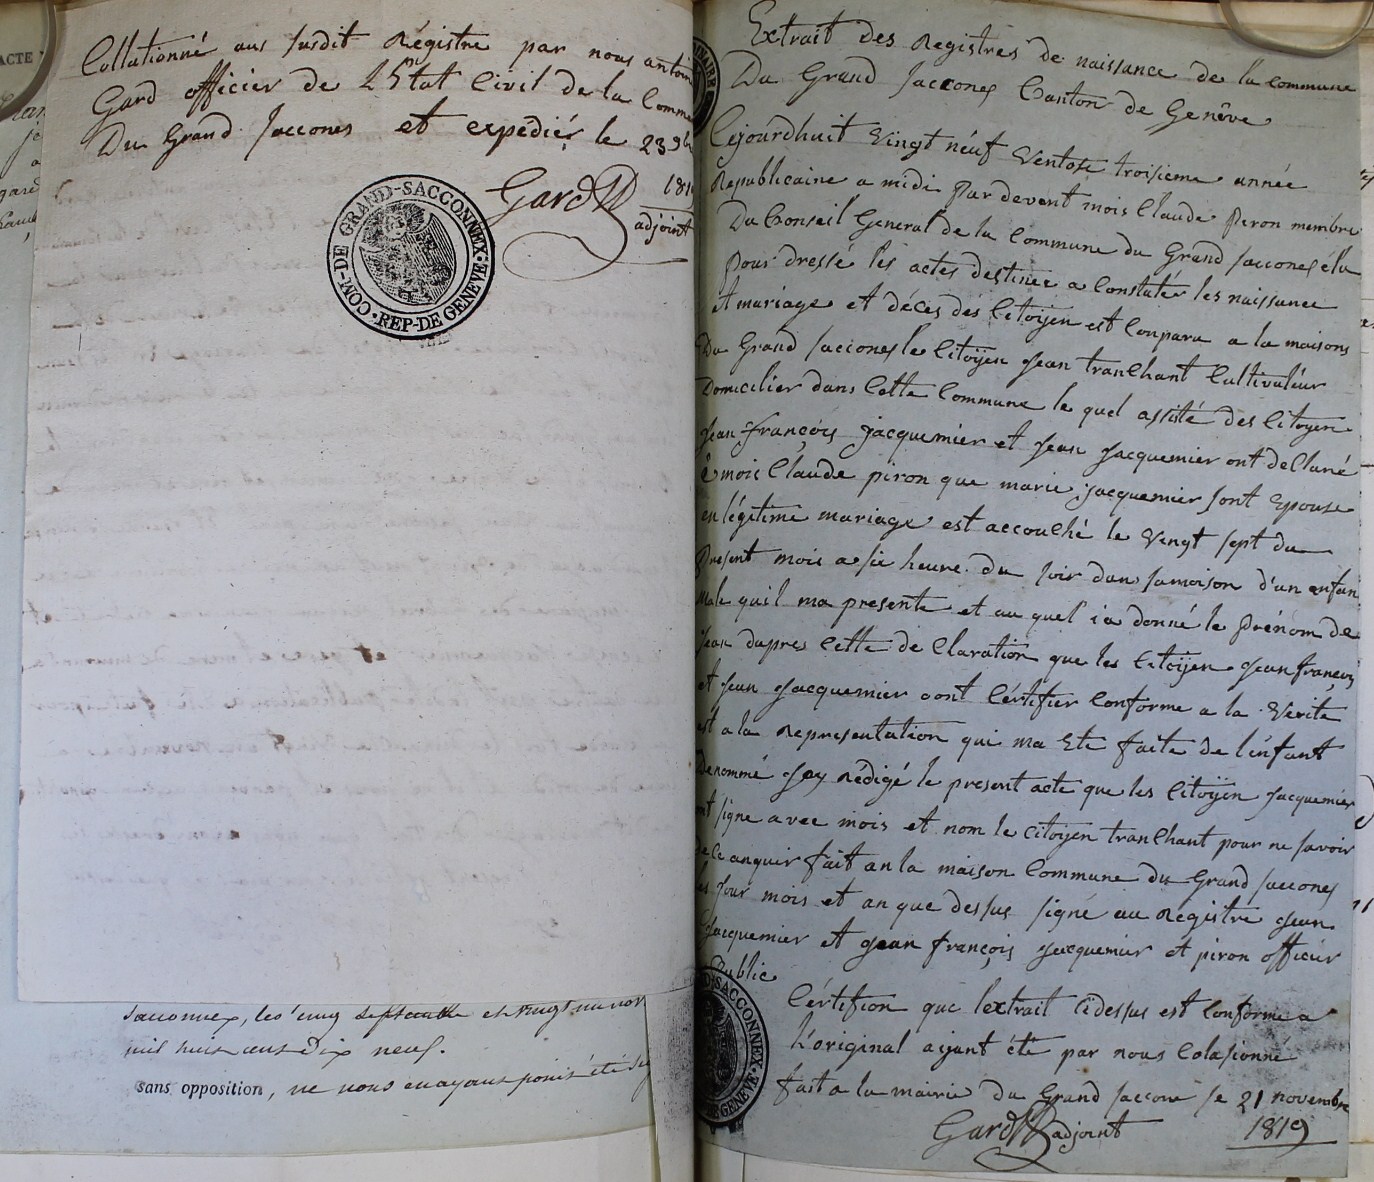 ACTE
Collationné aus susdit Régistre par nous antoin
Gard officier de L'Etat Civil de la Comm
Du Grand Saccones et expédiér le 23 9b
1819
Gard adjoint
COM-DE GRAND-SACCONNEX
REP-DE GENEVE
Sacconnex, les cinq septembre et vingt un nov
mil huit cent dix neuf.
sans opposition, ne nous ayant point été
Extrait des Registres de naissance de la commune
Du Grand Saccones Canton de Genêve
Cejourdhuit Vingt néuf Ventose troisieme année
Republicaine a midi par devent mois Claude Peron membre
Du Conseil General de la Commune du Grand Saccones élu
pour dressé les actes destinée a Constatér les naissance
et mariage et décés des Citoÿen est Conparu a la maisons
Du Grand Saccones le Citoÿen Jean tranChant Cultivatéur
Domicilier dans Cette Commune le quel assisté des Citoyen
Jean françois Jacquemier et Jean Jacquemier ont deClaré
a mois Claude piron que marie jacquemier sont Epouse
en légitime mariage est accouChé le Vingt sept du
Present mois a six heure du soir dans samaison d'un enfan
Male quil ma presente et au quel i'a donné le Prénom de
Jean dapres Cette de Claration que les Citoÿen Jean françois
et Jean Jacquemier oont Cértifier Conforme a la Verité
est a la Representation qui ma Ete faite de L'énfant
Denommé Jay rédigé le present acte que les Citoÿen Jacquemier
ont signe avec mois et nom le Citoÿen tranChant pour ne savoir
de Ce anquir fait an la maison Commune du Grand Saccones
les Jour mois et an que dessus signé au Registre Jean
Jacquemier et Jean françois Jacquemier et piron officiér
Public
Cértifion que l'extrait Cidessus est Conforme a
L'original aÿant été par nous Colasionné
fait a la mairie du Grand Saccone le 21 novembre
1819
Gard adjoint
SACCONNEX
DE GENEVE